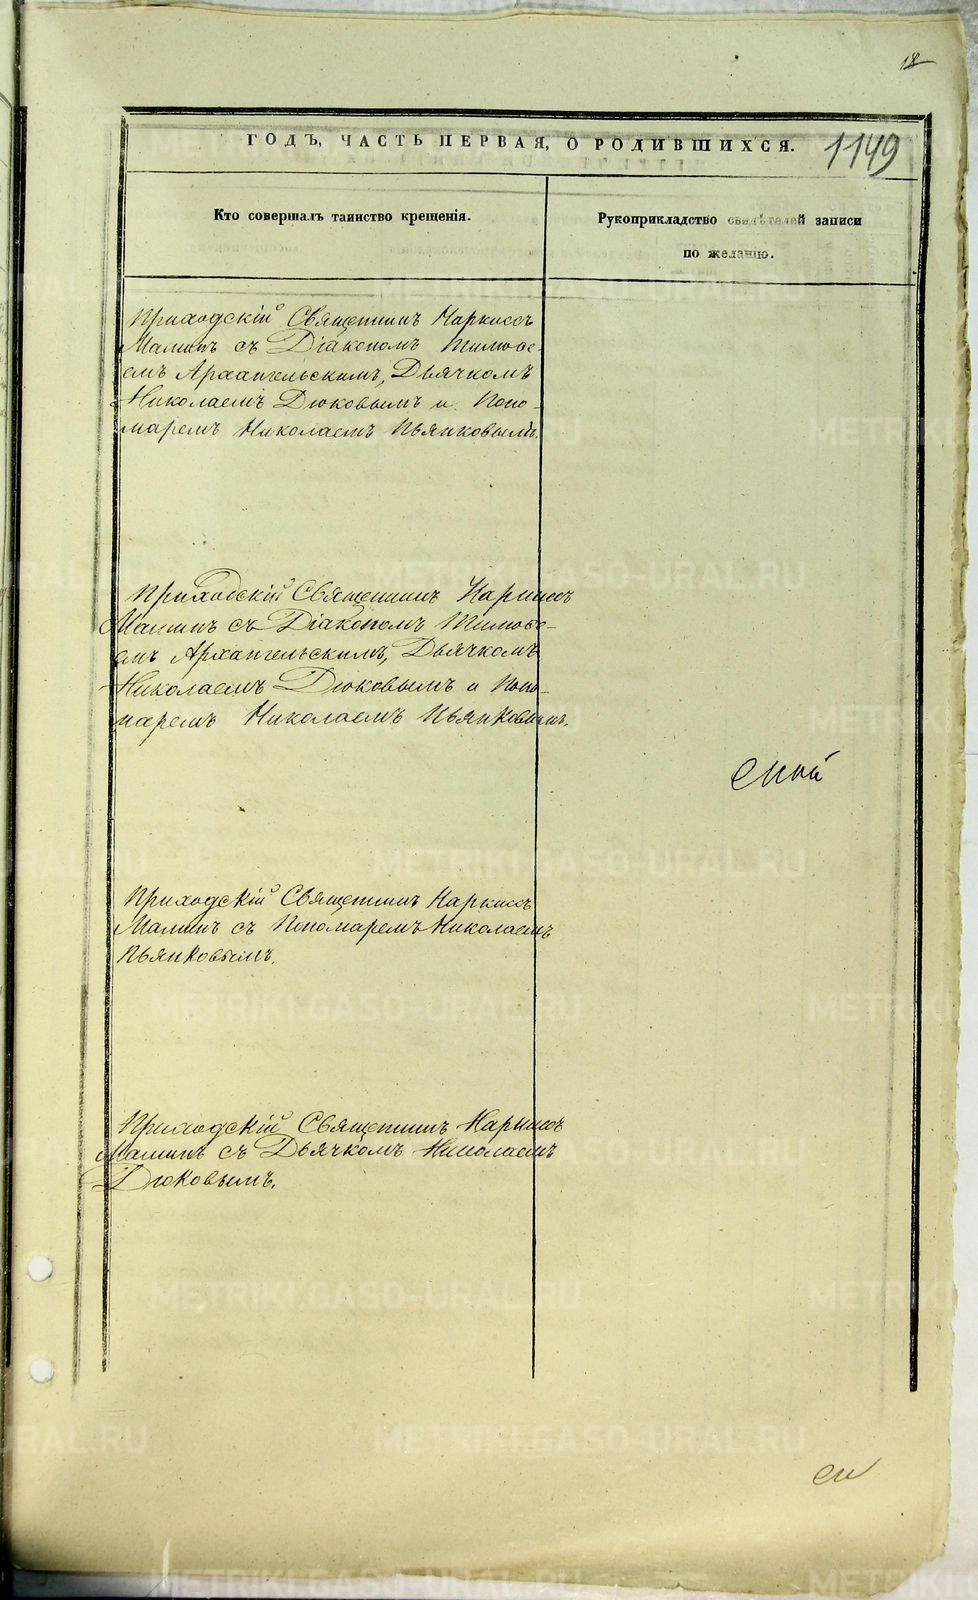 18
ГОДЪ, ЧАСТЬ ПЕРВАЯ, О РОДИВШИХСЯ.
1149
Кто совершалъ таинство крещенія.
Рукоприкладство свидѣтелей записи
по желанію.
Приходскій Священникъ Наркиссъ
Малинъ съ Діакономъ Тимоѳе-
емъ Архангельскимъ, Дьячкомъ
Николаемъ Дюковымъ и Поно-
маремъ Николаемъ Пьянковымъ.
Приходскій Священникъ Наркиссъ
Малинъ съ Діакономъ Тимоѳе-
емъ Архангельскимъ, Дьячкомъ
Николаемъ Дюковымъ и Поно-
маремъ Николаемъ Пьянковымъ.
Приходскій Священникъ Наркиссъ
Малинъ съ Пономаремъ Николаемъ
Пьянковымъ.
Приходскій Священникъ Наркиссъ
Малинъ съ Дьячкомъ Николаемъ
Дюковымъ.
METRIKI.GASO-URAL.RU